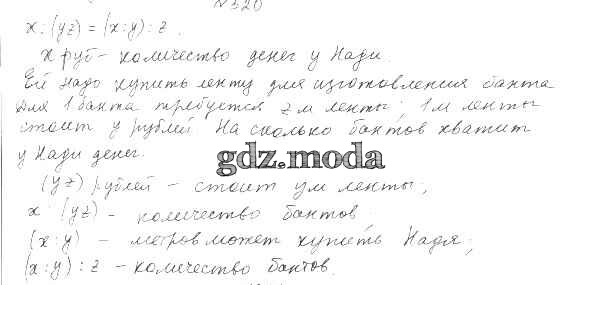 № 320
x : (yz) = (x : y) : z.
x руб - количество денег у Нади.
Ей надо купить ленту для изготовления банта
Для 1 банта требуется z м ленты; 1 м ленты
стоит y рублей. На сколько бантов хватит
у Нади денег.
gdz.moda
(yz) рублей - стоит y м ленты;
x : (yz) - количество бантов.
(x : y) - метров может купить Надя;
(x : y) : z - количество бантов.